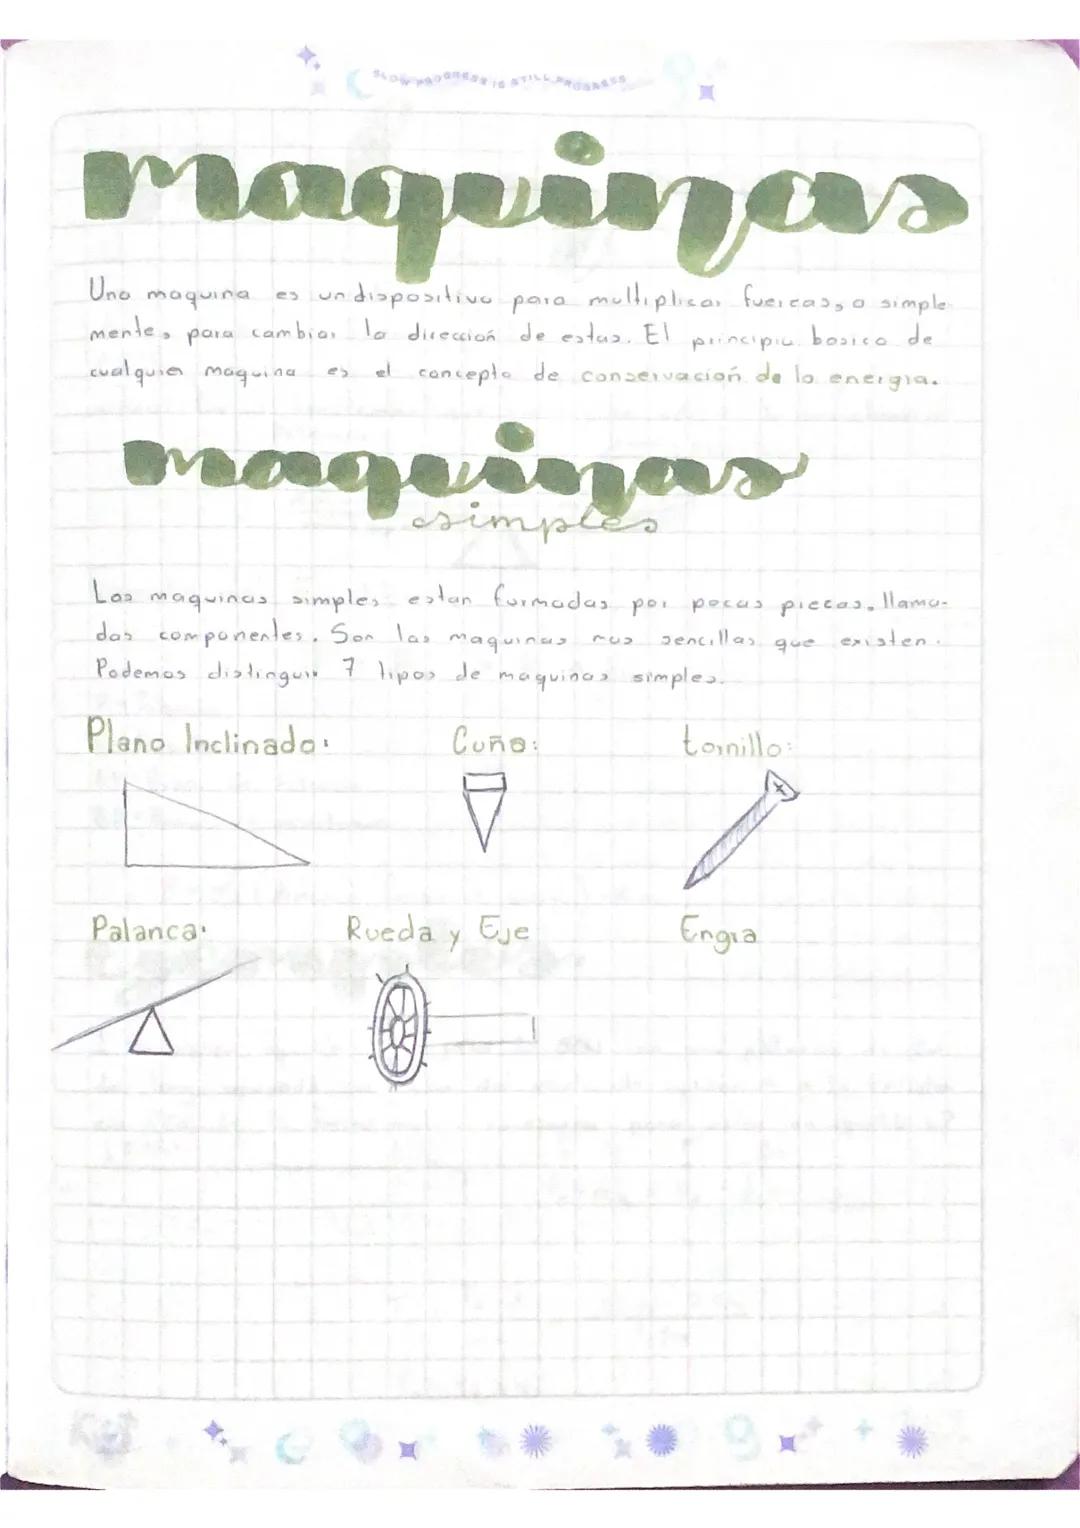 SLOW PROGRESS IS STILL PROGRESS
maquinas
Una maquina es un dispositivo para multiplicar fuercas, o simple
mente, para cambiar la dirección de estas. El principio basico de
cualquier maquina es el concepto de conservación de la energia.
maquinas
simples
Las maquinas simples estan formadas por pocas piecas, llama-
das componentes. Son las maquinas mas sencillas que existen.
Podemos distinguir 7 tipos de maquinas simples.
Plano Inclinado: Cuña: tornillo:
Palanca: Rueda y Eje Engra